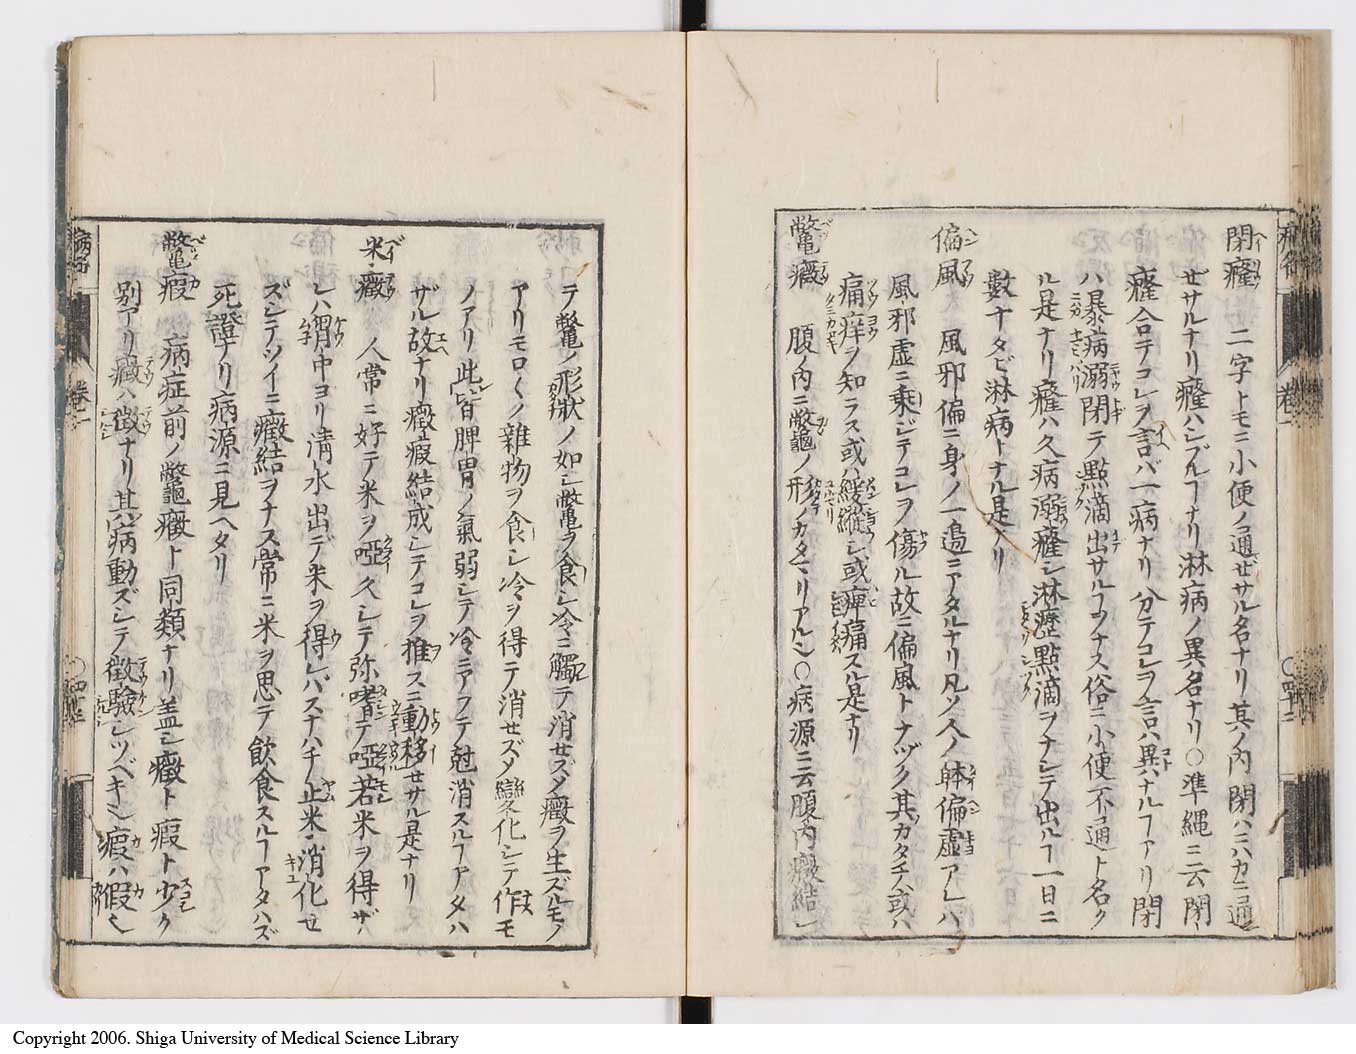 閉癃 二字トモニ小便ノ通ゼザル名ナリ其ノ内閉ハニハカニ通
ゼサルナリ癃ハシブルヿナリ淋病ノ異名ナリ○準縄ニ云閉
癃合テコレヲ言バ一病ナリ分テコレヲ言ハ異ナルヿアリ閉
ハ暴病溺閉テ點滴出サルヿヲナス俗ニ小便不通ト名ク
ル是ナリ癃ハ久病溺癃シ淋瀝點滴ヲナシテ出ルヿ一日ニ
數十タビ淋病トナル是ナリ
偏風 風邪偏ニ身ノ一邉ニアタルナリ凡ソ人ノ体偏虚アレハ
風邪虚ニ乗ジテコレヲ傷ル故ニ偏風トナヅク其カタチ或ハ
痛痒ヲ知ラス或ハ緩縱シ或痺痛スル是ナリ
鼈癥 腹ノ内ニ鼈ノ形ノカタマリアル乄○病源ニ云腹内癥結シ
テ鼈ノ形狀ノ如シ鼈ヲ食シ冷ニ觸テ消セズ乄癥ヲ生ズルモノ
アリモロ〱ノ雜物ヲ食シ冷ヲ得テ消セズ乄變化シテ作モ
ノアリ此皆脾胃ノ氣弱シテ冷ニアフテ尅消スルヿアタハ
ザル故ナリ癥瘕結成シテコレヲ推スニ動移セサル是ナリ
米癥 人常ニ好テ米ヲ啞久シテ弥嗜テ啞若米ヲ得ザ
レハ胸中ヨリ清水出デ米ヲ得レバスナハチ止米消化セ
ズシテツイニ癥結ヲナス常ニ米ヲ思テ飲食スルヿアタハズ
死證ナリ病源ニ見ヘタリ
鼈瘕 病症前ノ鼈癥ト同類ナリ盖シ癥ト瘕ト少ク
別アリ癥ハ徴ナリ其病動ズシテ徴驗シツベキ乄瘕ハ假乄
病名 卷一 ○四十二
病名 卷一 ○四十三
Copyright 2006. Shiga University of Medical Science Library